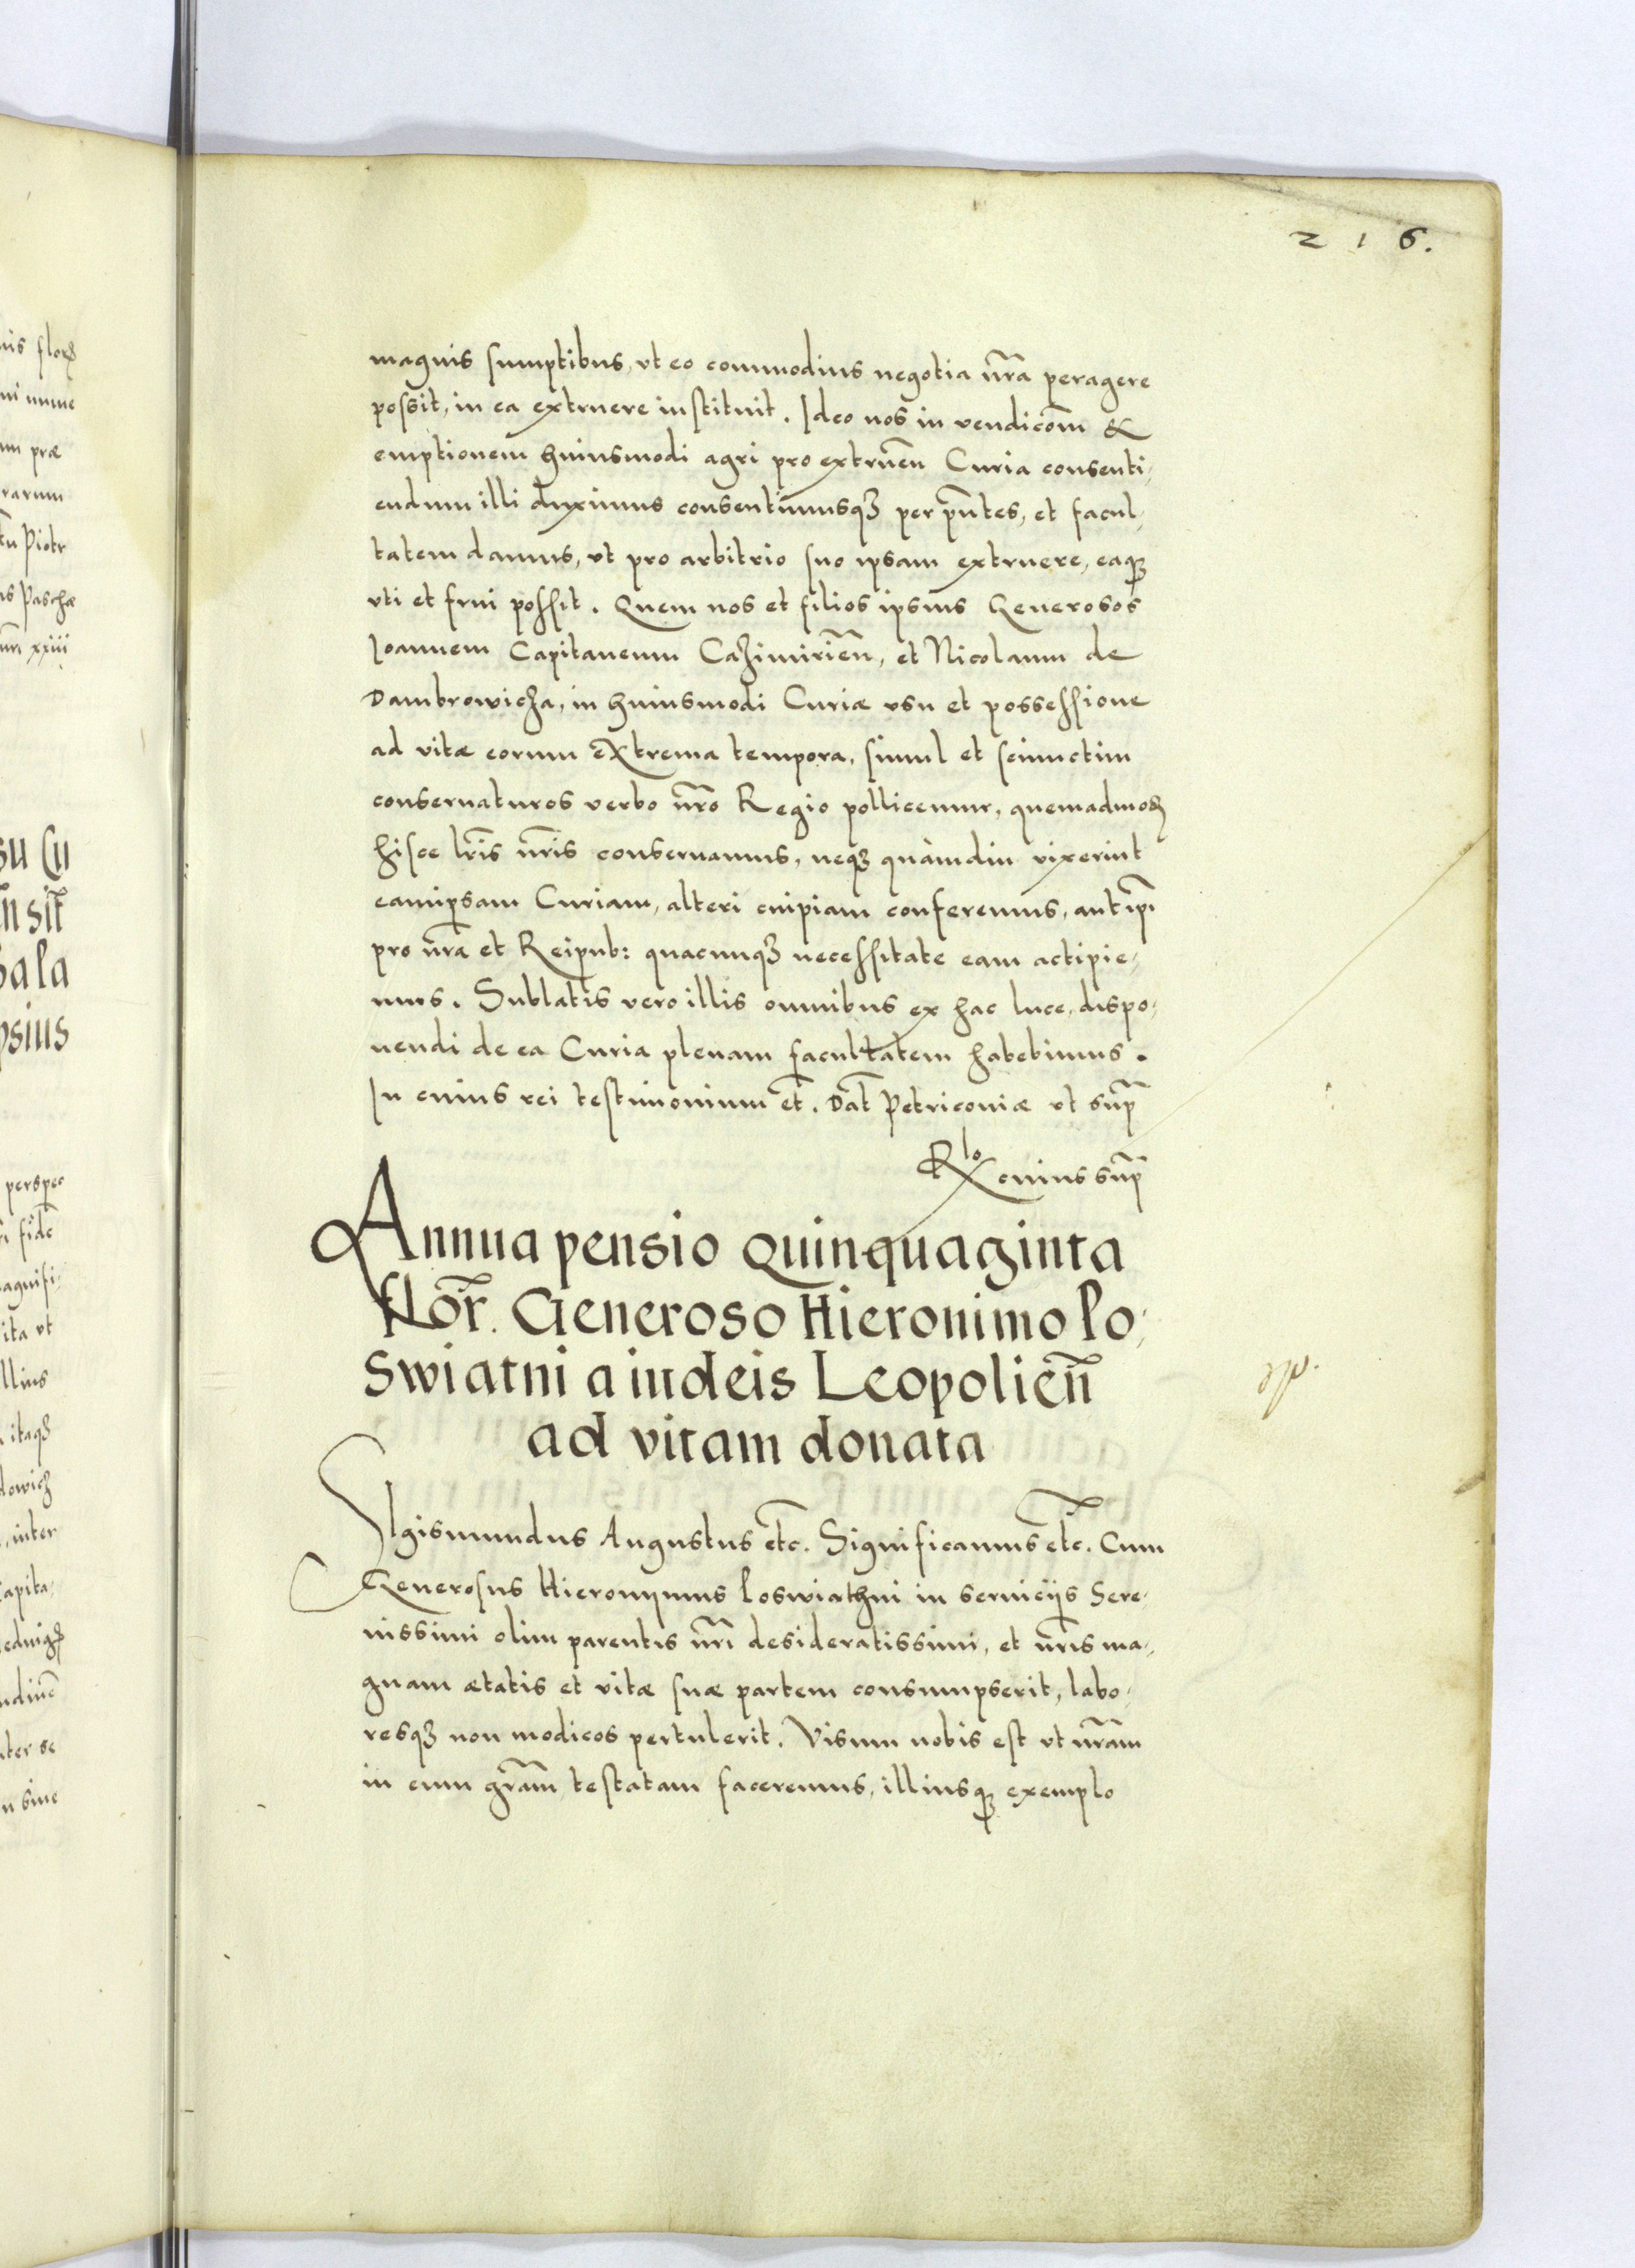 216.
magnis sumptibus, vt eo commodius negotia nr̃a peragere
possit, in ea extruere instituit. Ideo nos in vendicõem &
emptionem huiusmodi agri pro extruẽn Curia consenti,
endum illi duximus consentimusqꝫ per pñtes, et facul,
tatem damus, vt pro arbitrio suo ipsam extruere, eaqꝫ
vti et frui possit. Quem nos et filios ipsius Generosos
Joannem Capitaneum Cazimiriẽn, et Nicolaum de
Dambrowicza, in huiusmodi Curiæ vsu et possessione
ad vitæ eorum extrema tempora, simul et seiunctim
conseruaturos verbo nr̃o Regio pollicemur, quemadmoꝫ
hisce lr̃is nr̃is conseruamus, neqꝫ quàmdiu vixerint
eamipsam Curiam, alteri cuipiam conferemus, aut ip̃i
pro nr̃a et Reipub: quacunqꝫ necessitate eam actipie,
mus. Sublatis vero illis omnibus ex hac luce, dispo,
nendi de ea Curia plenam facultatem habebimus.
In cuius rei testimonium et̃. Dat̃ Petricouiæ vt sup̃
Rlo cuius sup̃
Annua pensio Quinquaginta
flor̃. Generoso Hieronimo lo,
swiatni a iudeis Leopoliẽn
ad vitam donata
Sigismundus Augustus et̃c. Significamus et̃c. Cum
Generosus Hieronymus loswiathni in seruicijs Sere,
nissimi olim parentis nr̃i desideratissimi, et nr̃is ma,
gnam ætatis et vitæ suæ partem consumpserit, labo,
resqꝫ non modicos pertulerit. Visum nobis est vt nr̃am
in eum gr̃am testatam faceremus, illiusqꝫ exemplo